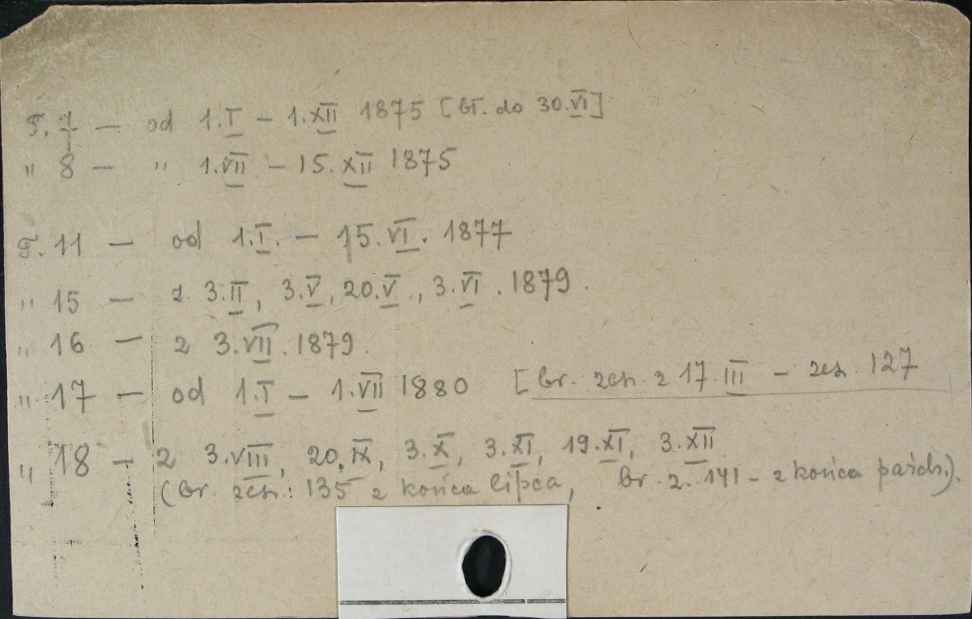 T. 7 — od 1.I – 1.XII 1875 [br. do 30.VI]
" 8 — " 1.VII – 15.XII 1875
T. 11 — od 1.I. – 15.VI. 1877
" 15 — z 3.II, 3.V, 20.V., 3.VI. 1879.
" 16 — z 3.VII. 1879.
" 17 — od 1.I – 1.VII 1880 [br. zesz. z 17.III – zesz. 127
" 18 – z 3.VIII, 20.IX, 3.X, 3.XI, 19.XI, 3.XII
(br. zesz.: 135 z końca lipca, br. z. 141 – z końca paźdz.).